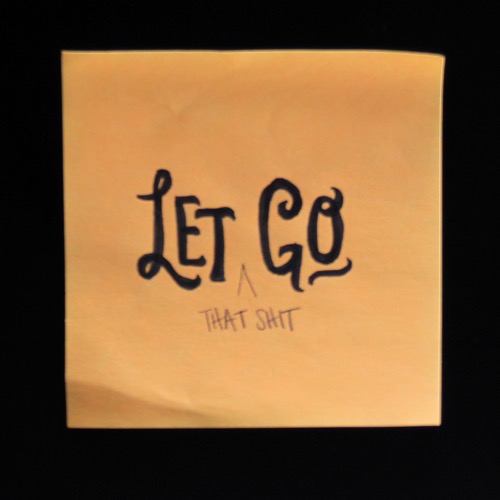 LET GO
^
THAT SHIT